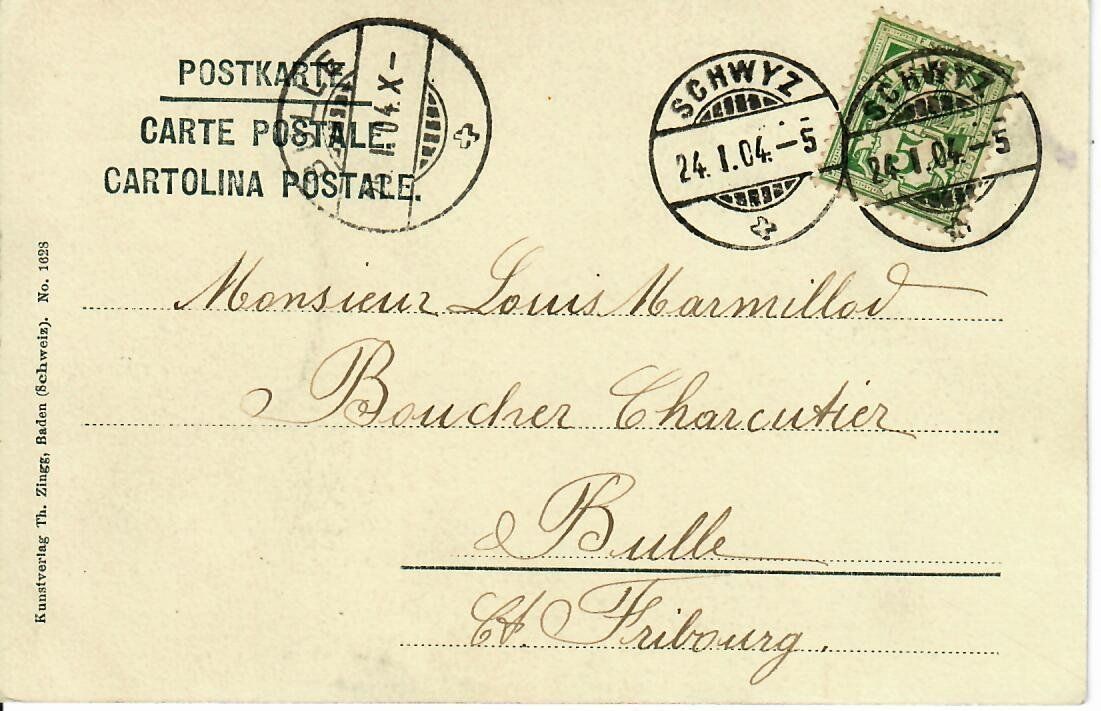 POSTKARTE.
CARTE POSTALE.
CARTOLINA POSTALE.
BULLE
I.04.X-
SCHWYZ
24.I.04.-5
SCHWYZ
24.I.04.-5
5
Monsieur Louis Marmillod
Boucher Charcutier
Bulle
Ct. Fribourg.
Kunstverlag Th. Zingg, Baden (Schweiz). No. 1628